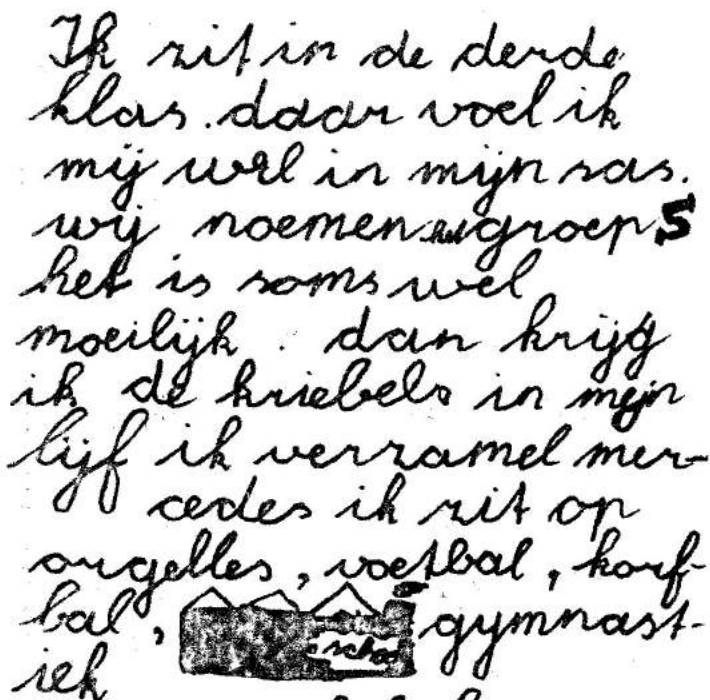 Ik zit in de derde
klas. daar voel ik
mij wel in mijn sas.
wij noemen het groep 5
het is soms wel
moeilijk. dan krijg
ik de kriebels in mijn
lijf ik verzamel mer-
cedes ik zit op
orgelles, voetbal, korf-
bal, school gymnast-
iek